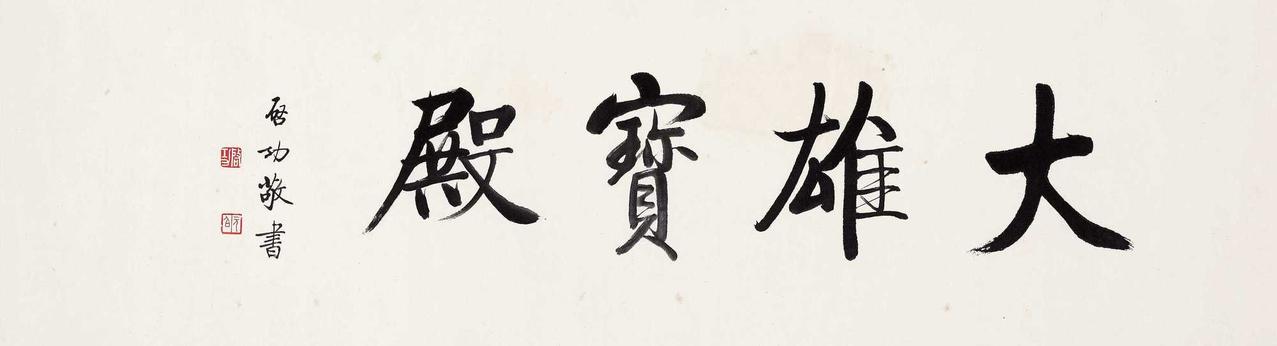 大雄寶殿
啟功敬書